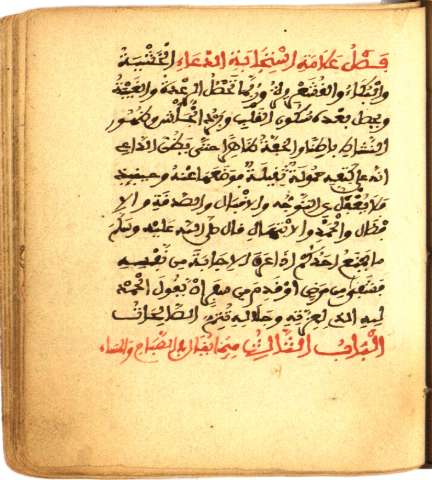 فصل علامة استجابة الدعاء الخشية
والبكاء والقشعريرة وربما تحصل الرعدة والغيبة
ويحصل بعده سكون القلب وبرد الجأش وظهور
النشاط باطنا والخفة ظاهرا حتى يظن الداعي
انه على كتفيه حمولة ثقيلة فوضعها عنه وحينئذ
فلا يغفل عن التوجه والاقبال والصدقة والا
فضال والحمد والابتهال قال صلى الله عليه وسلم
ما يمنع احدكم اذا عرف الاجابة من نفسه
فشفي من مرض او قدم من سفر ان يقول الحمد
لله الذي بعزته وجلاله تتم الصالحات
الباب الثالث فيما يقال في الصباح والمساء